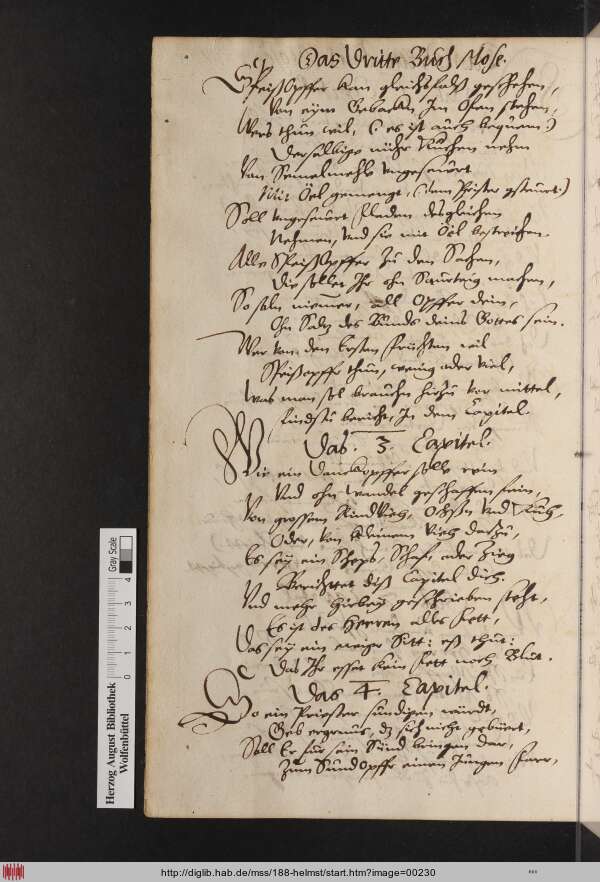 Das Dritte Buch Mose.
Speißopffer kan gleichsfalß geschehen,
Von eym Gebacken Im Ofen stehen,
Wers thun wil, (: es ist auch bequem:)
Derselbige Kuchen nehm
Von Semelmehle ungeseurt
Mit Öel gemengt,
Soll ungeseurt fladen desgleichen
Nehmen, und sie mit Öel bestreichen.
Alle Speißopffer zu den Sachen,
Die sollet Ihr ohn Saurteig machen,
So soln nimmer, all Opffer dein,
Ohn Saltz des Bunds deins Gottes sein.
Wer von den Ersten früchten wil
Speißopffer thun, wenig oder viel,
Was man sol brauchen hierzu vor mittel,
findstu bericht, In dem Capitel.
Das. 3. Capitel.
Wie ein Danckopffer solle rein
Und ohn wandel geschaffen sein,
Von grossem Rindvieh, Ochsen und Küh,
Oder, von kleinem Vieh darzu,
Es sey ein Schops, Schaf, oder Zieg
Berichttet diß Capitel dich.
Und mehr hierbey geschrieben steht,
Es ist des Herren alles fett,
Das sey ein ewiger Sitt:
Das Ihr esset kein fett noch Blut.
Das 4. Capitel.
So ein Priester sündigen würdt,
sich nicht gebürt,
Soll Er für sein Sünd bringen dar,
Zum Sündopffer einen Jungen farr,
Herzog August Bibliothek
Wolfenbüttel
0 1 2 3 4
Gray Scale
http://diglib.hab.de/mss/188-helmst/start.htm?image=00230